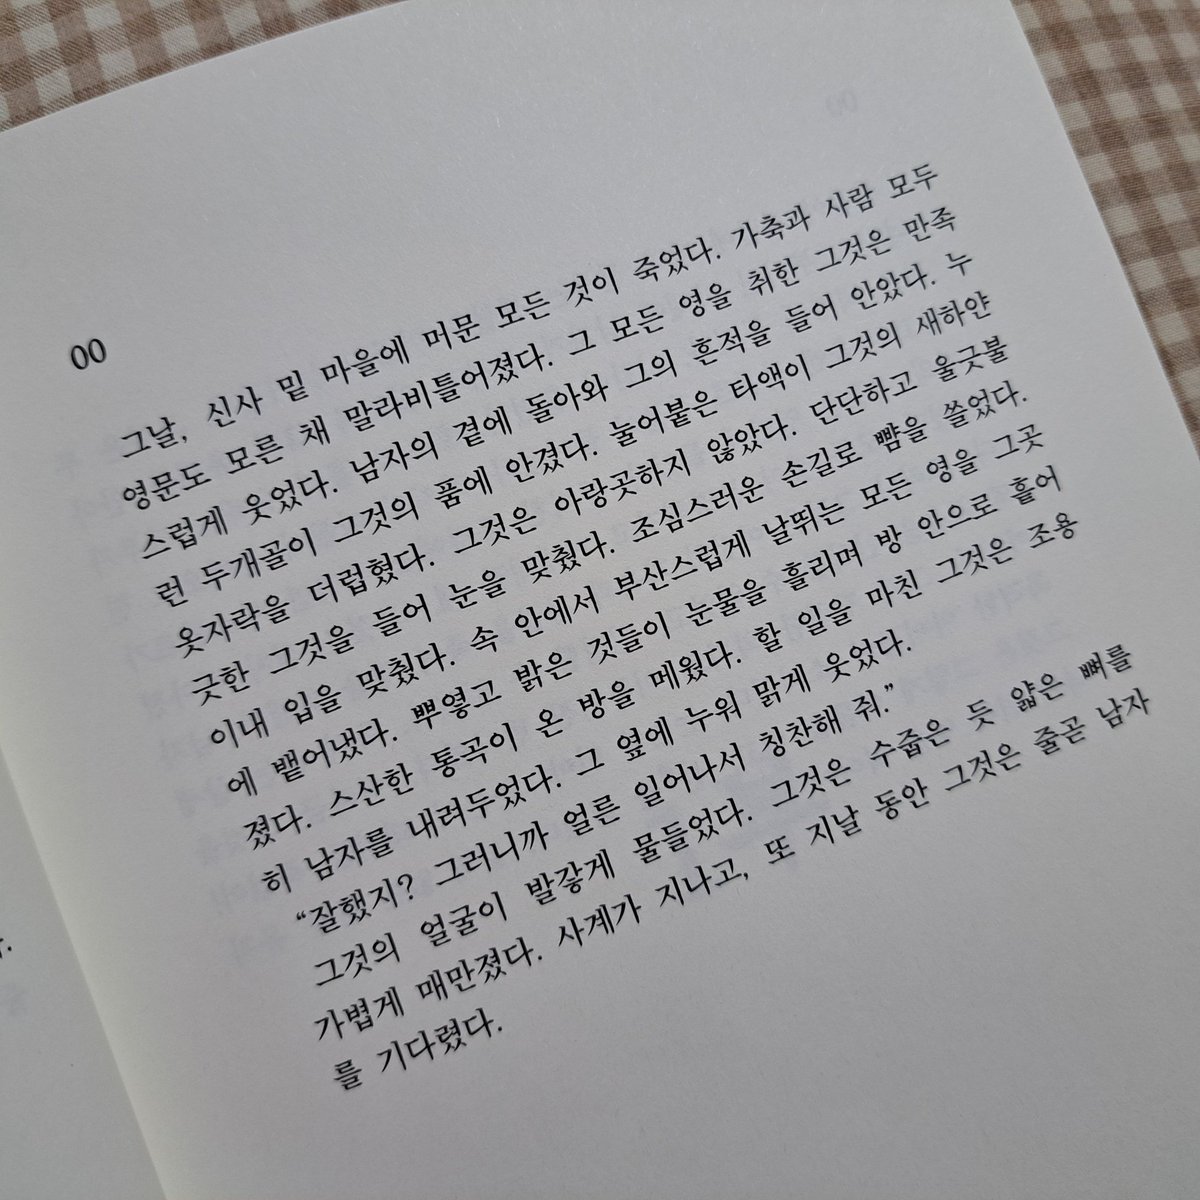 00
그날, 신사 밑 마을에 머문 모든 것이 죽었다. 가축과 사람 모두
영문도 모른 채 말라비틀어졌다. 그 모든 영을 취한 그것은 만족
스럽게 웃었다. 남자의 곁에 돌아와 그의 흔적을 들어 안았다. 누
런 두개골이 그것의 품에 안겼다. 눌어붙은 타액이 그것의 새하얀
옷자락을 더럽혔다. 그것은 아랑곳하지 않았다. 단단하고 울긋불
긋한 그것을 들어 눈을 맞췄다. 조심스러운 손길로 뺨을 쓸었다.
이내 입을 맞췄다. 속 안에서 부산스럽게 날뛰는 모든 영을 그곳
에 뱉어냈다. 뿌옇고 밝은 것들이 눈물을 흘리며 방 안으로 흩어
졌다. 스산한 통곡이 온 방을 메웠다. 할 일을 마친 그것은 조용
히 남자를 내려두었다. 그 옆에 누워 맑게 웃었다.
“잘했지? 그러니까 얼른 일어나서 칭찬해 줘.”
그것의 얼굴이 발갛게 물들었다. 그것은 수줍은 듯 얇은 뼈를
가볍게 매만졌다. 사계가 지나고, 또 지날 동안 그것은 줄곧 남자
를 기다렸다.